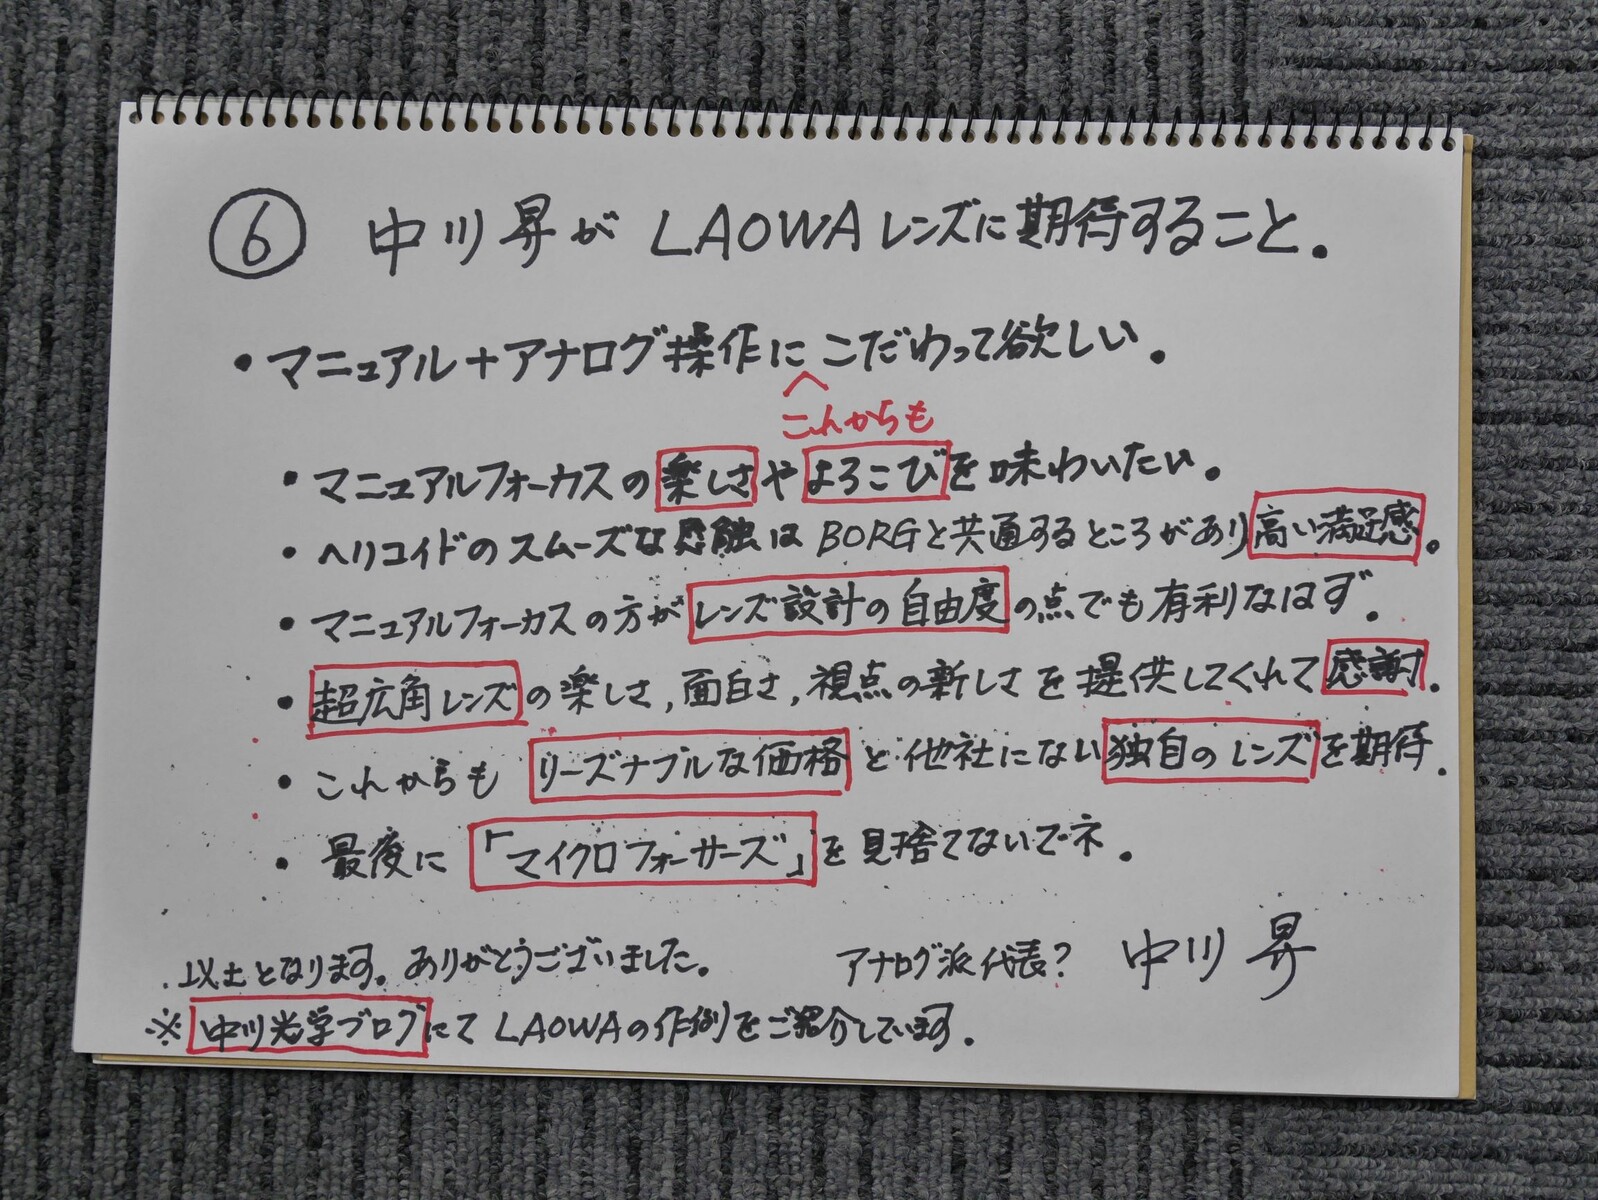 ⑥ 中川昇が LAOWAレンズに期待すること。
・マニュアル+アナログ操作に こだわって欲しい。
これからも
・マニュアルフォーカスの楽しさやよろこびを味わいたい。
・ヘリコイドのスムーズな感触はBORGと共通するところがあり高い満足感。
・マニュアルフォーカスの方がレンズ設計の自由度の点でも有利なはず。
・超広角レンズの楽しさ,面白さ,視点の新しさを提供してくれて感謝。
・これからも リーズナブルな価格と他社にない独自のレンズを期待。
・最後に「マイクロフォーサーズ」を見捨てないでネ。
以上となります。ありがとうございました。 アナログ派代表? 中川 昇
※中川光学ブログにて LAOWAの作例をご紹介しています。